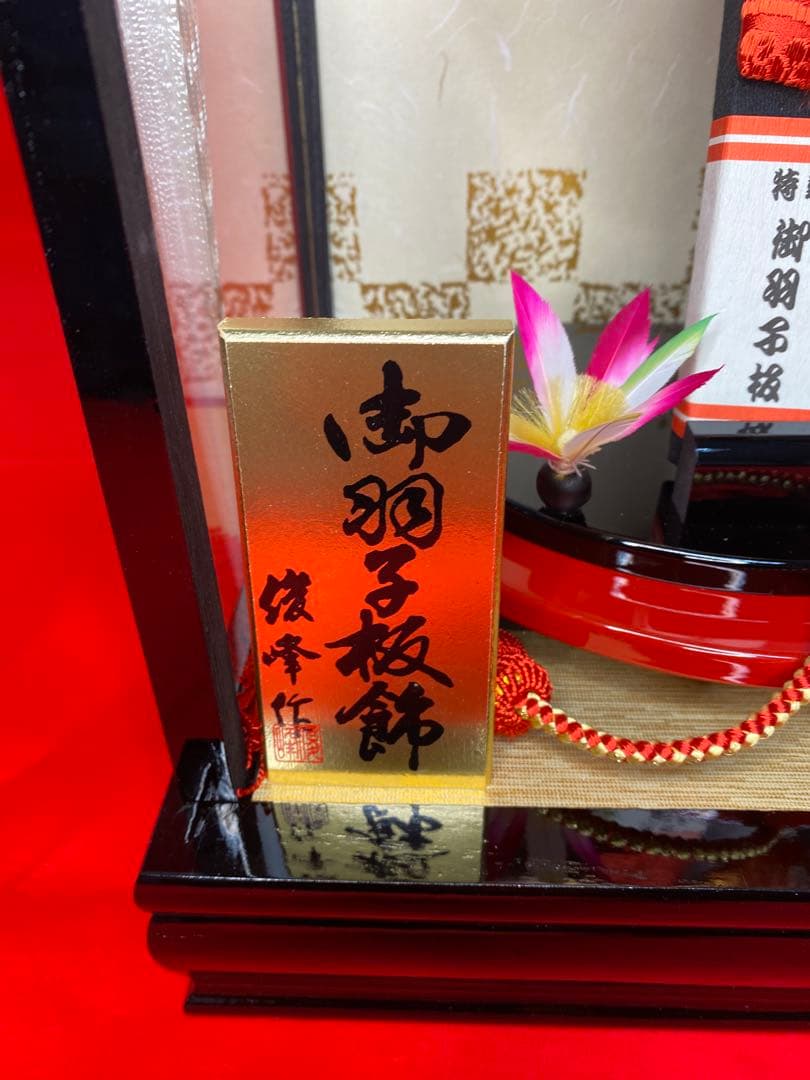 御羽子板飾
俊峰作
特
御羽子板